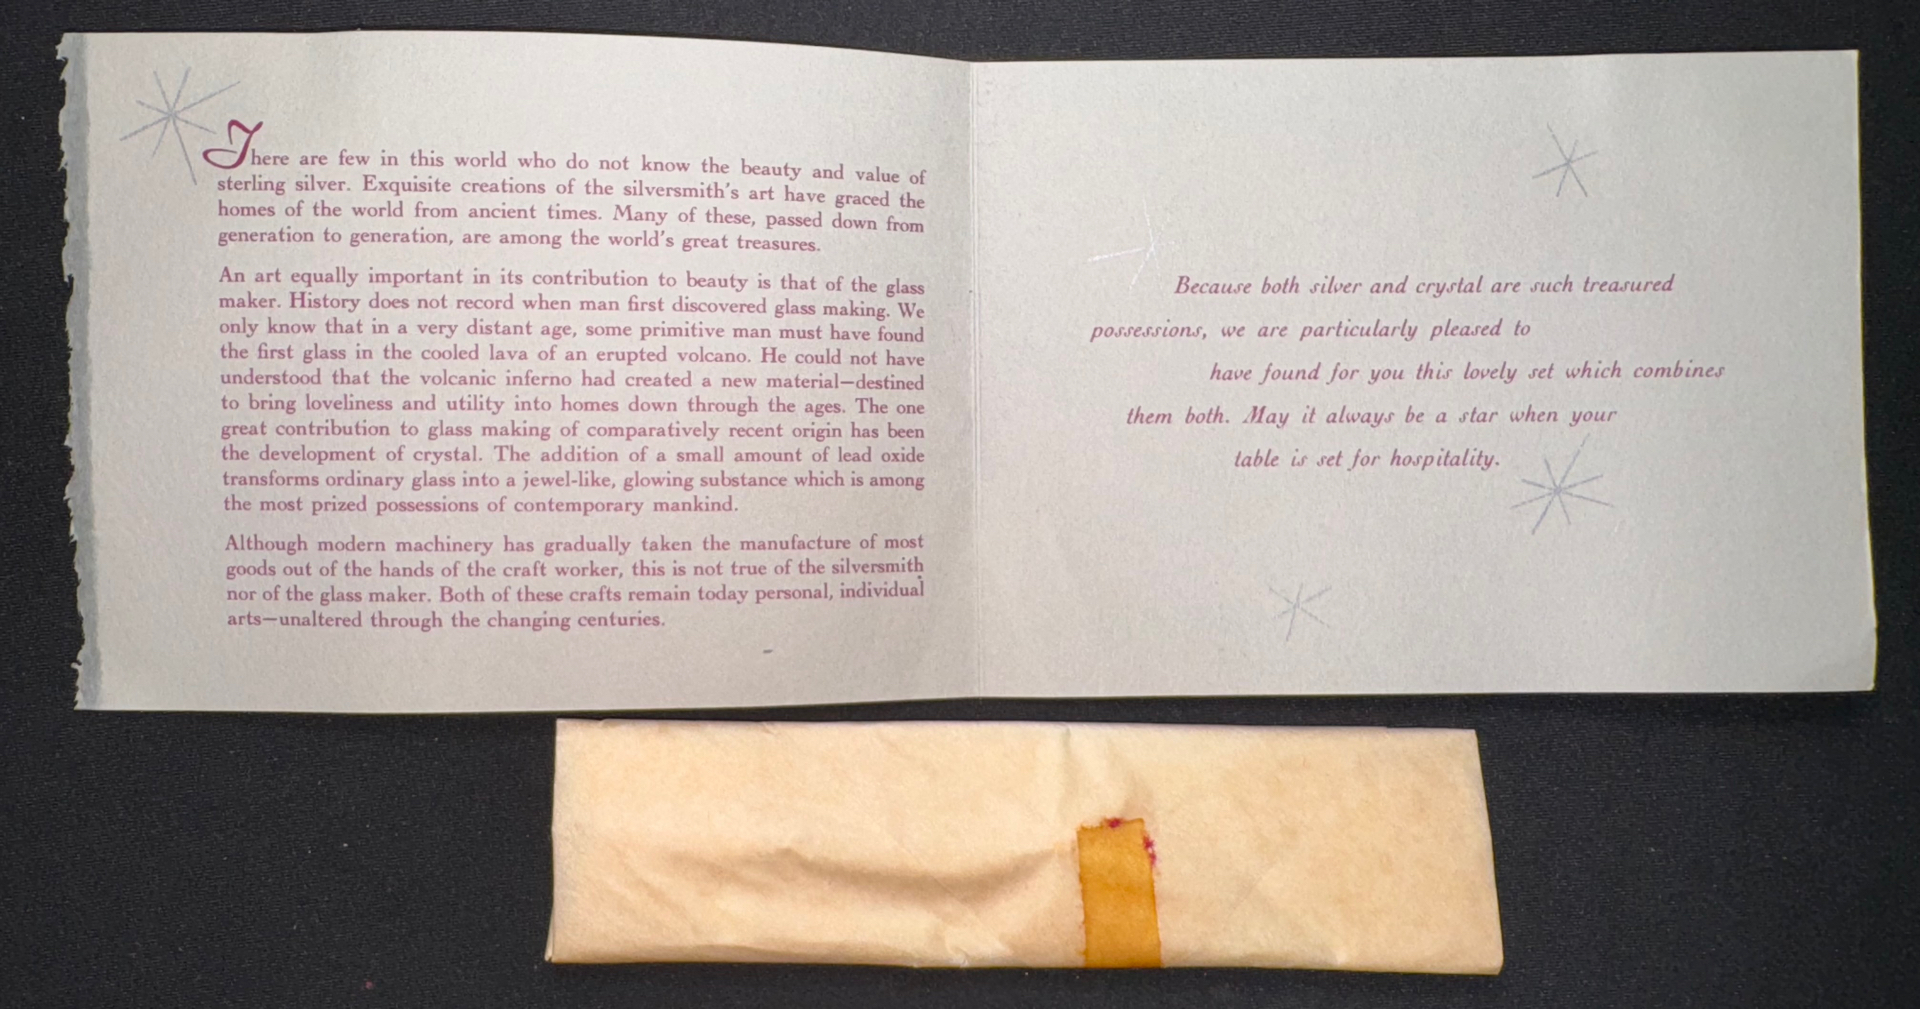 There are few in this world who do not know the beauty and value of
sterling silver. Exquisite creations of the silversmith's art have graced the
homes of the world from ancient times. Many of these, passed down from
generation to generation, are among the world's great treasures.
An art equally important in its contribution to beauty is that of the glass
maker. History does not record when man first discovered glass making. We
only know that in a very distant age, some primitive man must have found
the first glass in the cooled lava of an erupted volcano. He could not have
understood that the volcanic inferno had created a new material—destined
to bring loveliness and utility into homes down through the ages. The one
great contribution to glass making of comparatively recent origin has been
the development of crystal. The addition of a small amount of lead oxide
transforms ordinary glass into a jewel-like, glowing substance which is among
the most prized possessions of contemporary mankind.
Although modern machinery has gradually taken the manufacture of most
goods out of the hands of the craft worker, this is not true of the silversmith
nor of the glass maker. Both of these crafts remain today personal, individual
arts—unaltered through the changing centuries.
Because both silver and crystal are such treasured
possessions, we are particularly pleased to
have found for you this lovely set which combines
them both. May it always be a star when your
table is set for hospitality.